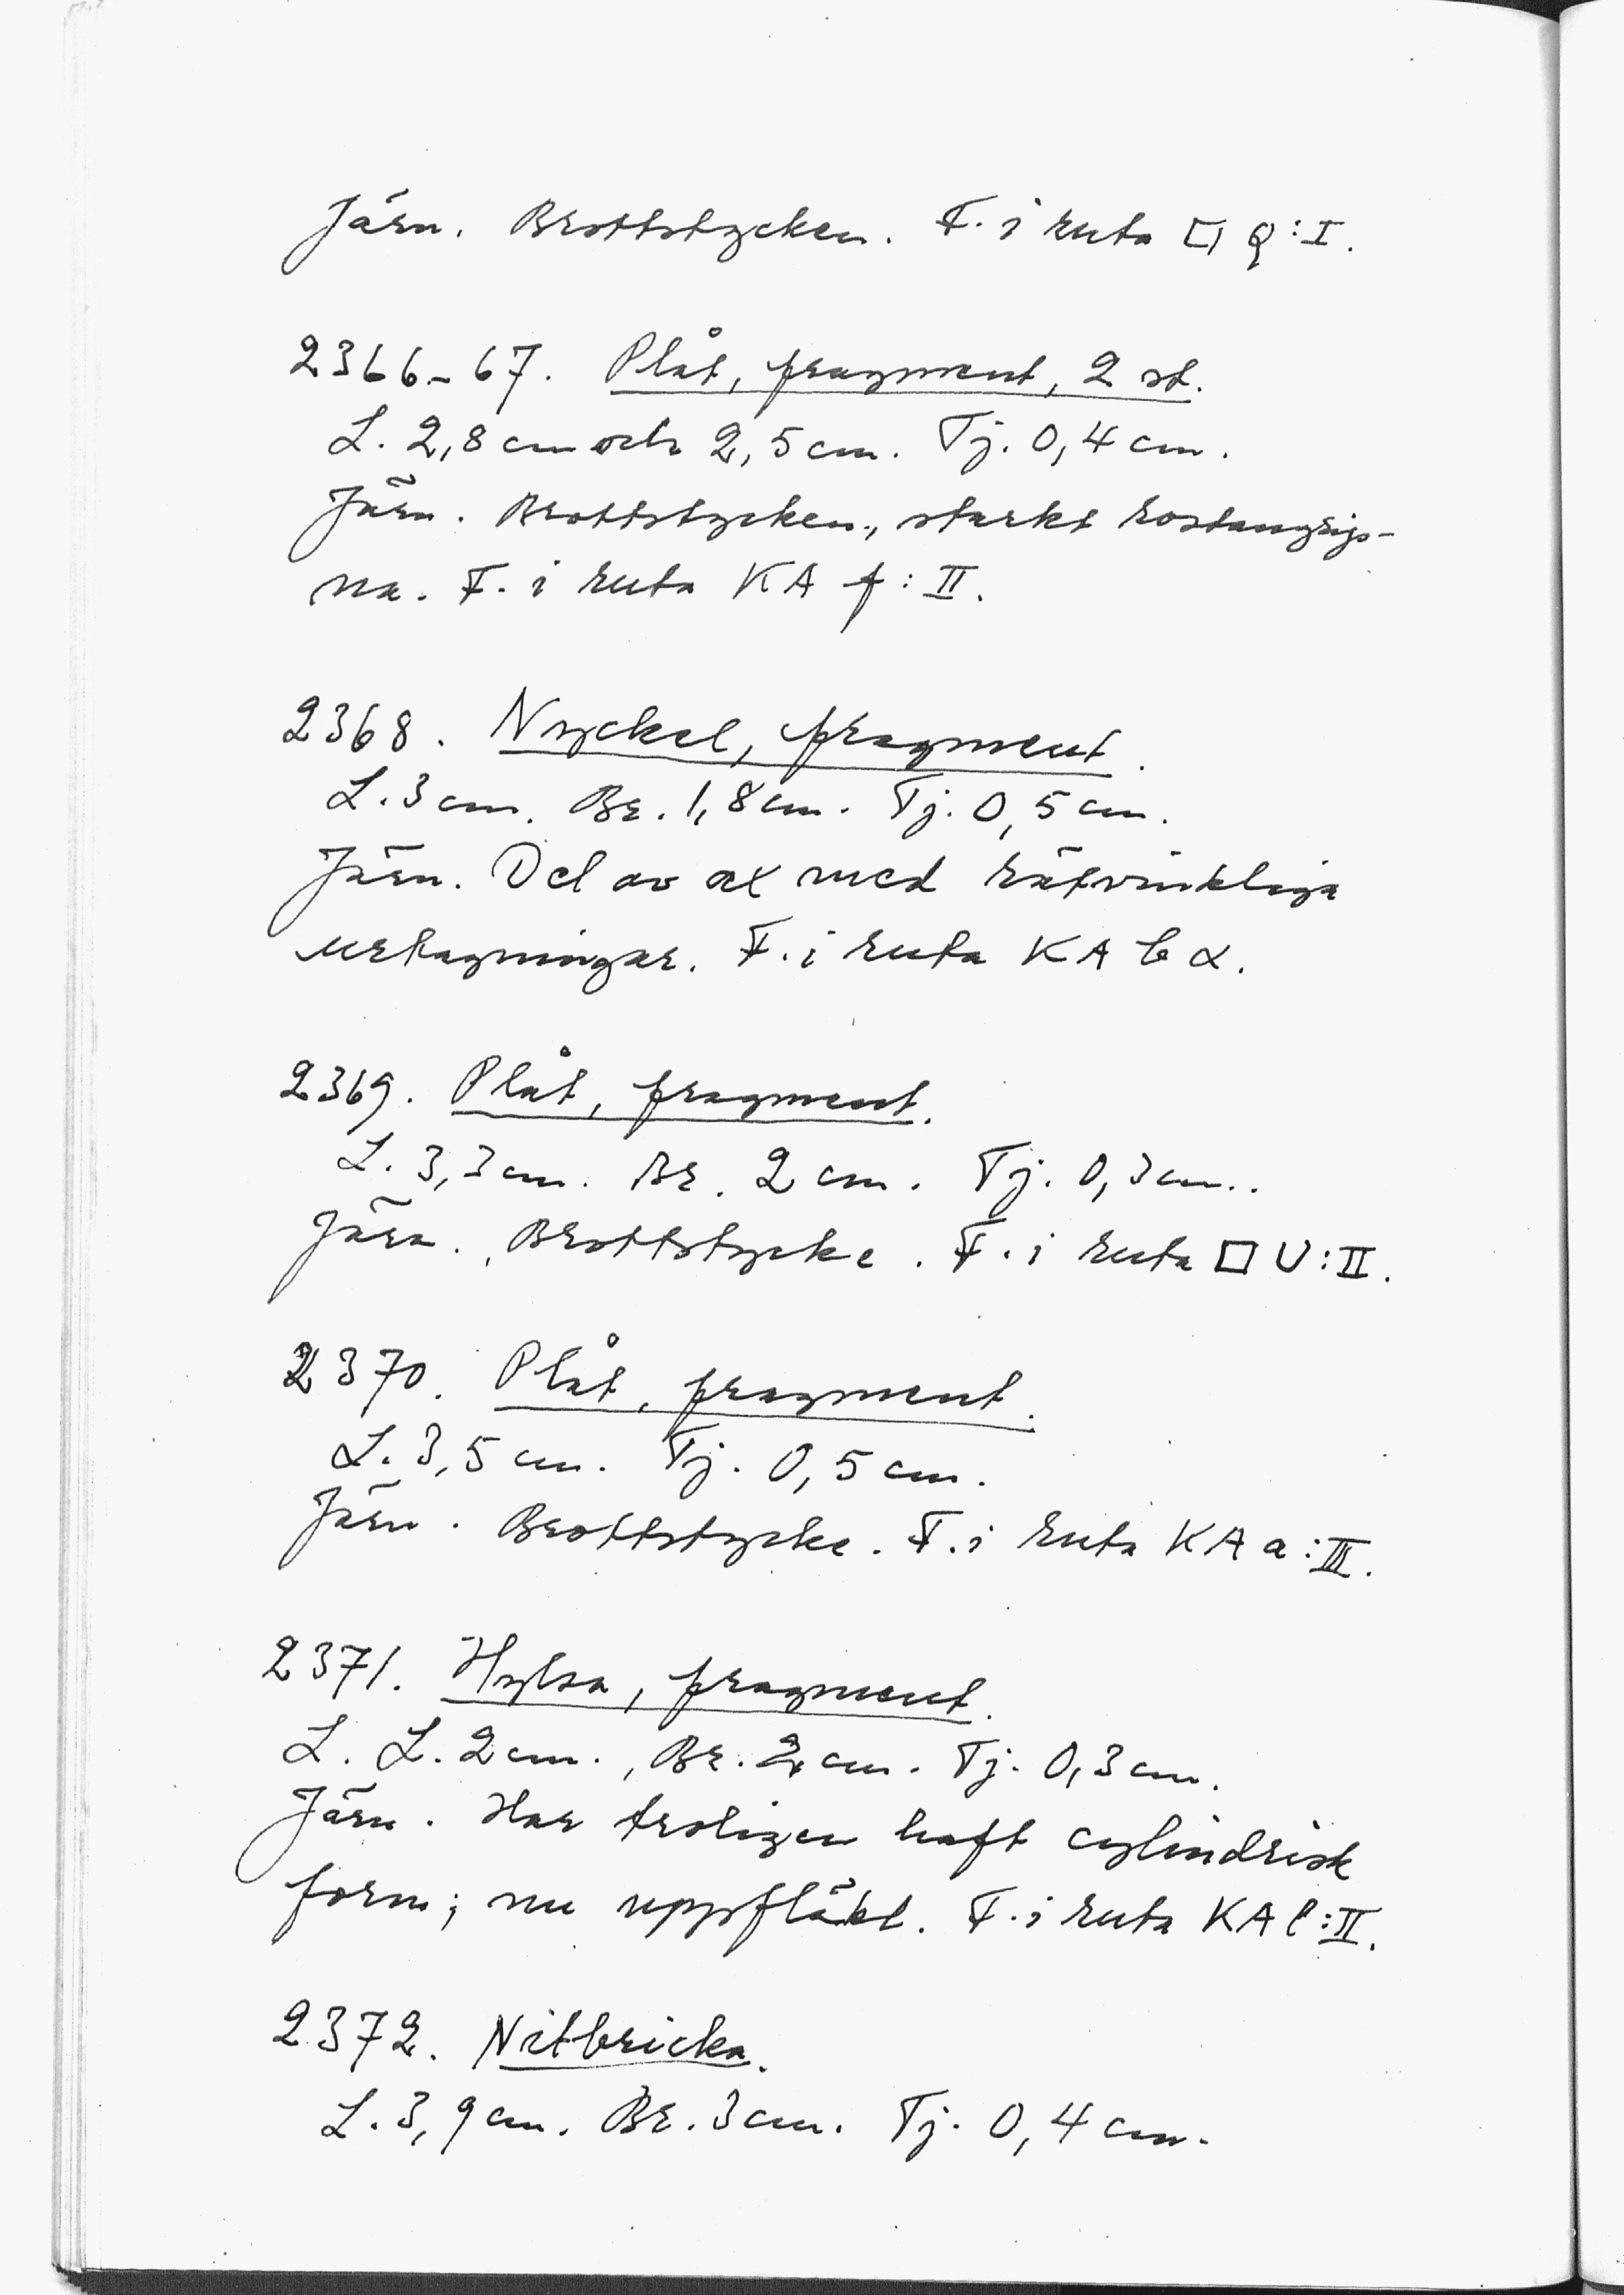 Järn. Brottstycken. F. i ruta □ Q:I.
2366-67. Plåt, fragment, 2 st.
L. 2,8 cm och 2,5 cm. Tj. 0,4 cm.
Järn. Brottstycken, starkt rostangrips-
na. F. i ruta KA f:II.
2368. Nyckel, fragment.
L. 3 cm. Br. 1,8 cm. Tj. 0,5 cm.
Järn. Del av ax med rätvinkliga
urtagningar. F. i ruta KA b α.
2369. Plåt, fragment.
L. 3,3 cm. Br. 2 cm. Tj. 0,3 cm..
Järn. Brottstycke. F. i ruta □ U:II.
2370. Plåt, fragment.
L. 3,5 cm. Tj. 0,5 cm.
Järn. Brottstycke. F. i ruta KA a:III.
2371. Hylsa, fragment.
L. L. 2 cm., Br. 2 cm. Tj. 0,3 cm.
Järn. Har troligen haft cylindrisk
form; nu uppfläkt. F. i ruta KA l:II.
2372. Nitbricka.
L. 3,9 cm. Br. 3 cm. Tj. 0,4 cm.